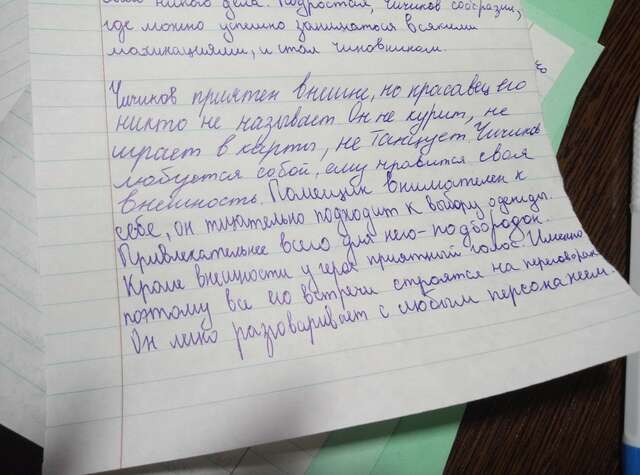 ника дела. Подрастая, Чичиков сообразил,
где можно успешно заниматься всякими
махинациями, и стал чиновником.
Чичиков приятен внешне, но красавец его
никто не называет. Он не курит, не
играет в карты, не танцует. Чичиков
любуется собой, ему нравится своя
внешность. Помещик внимателен к
себе, он тщательно подходит к выбору одежды.
Привлекательнее всего для него - подбородок.
Кроме внешности у героя приятный голос. Именно
поэтому все его встречи строятся на переговорах
Он легко разговаривает с любым персонажем.